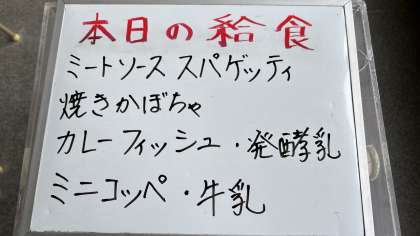 本日の給食
ミートソース スパゲッティ
焼きかぼちゃ
カレーフィッシュ・発酵乳
ミニコッペ・牛乳